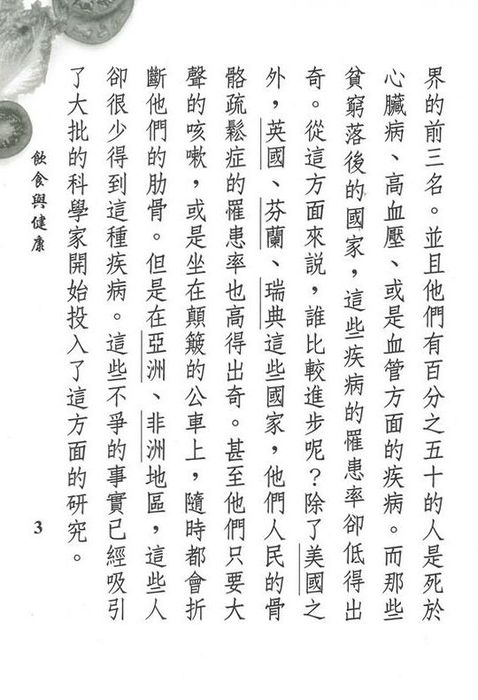 界的前三名。並且他們有百分之五十的人是死於
心臟病、高血壓、或是血管方面的疾病。而那些
貧窮落後的國家，這些疾病的罹患率卻低得出
奇。從這方面來說，誰比較進步呢？除了美國之
外，英國、芬蘭、瑞典這些國家，他們人民的骨
骼疏鬆症的罹患率也高得出奇。甚至他們只要大
聲的咳嗽，或是坐在顛簸的公車上，隨時都會折
斷他們的肋骨。但是在亞洲、非洲地區，這些人
卻很少得到這種疾病。這些不爭的事實已經吸引
了大批的科學家開始投入了這方面的研究。
飲食與健康
3